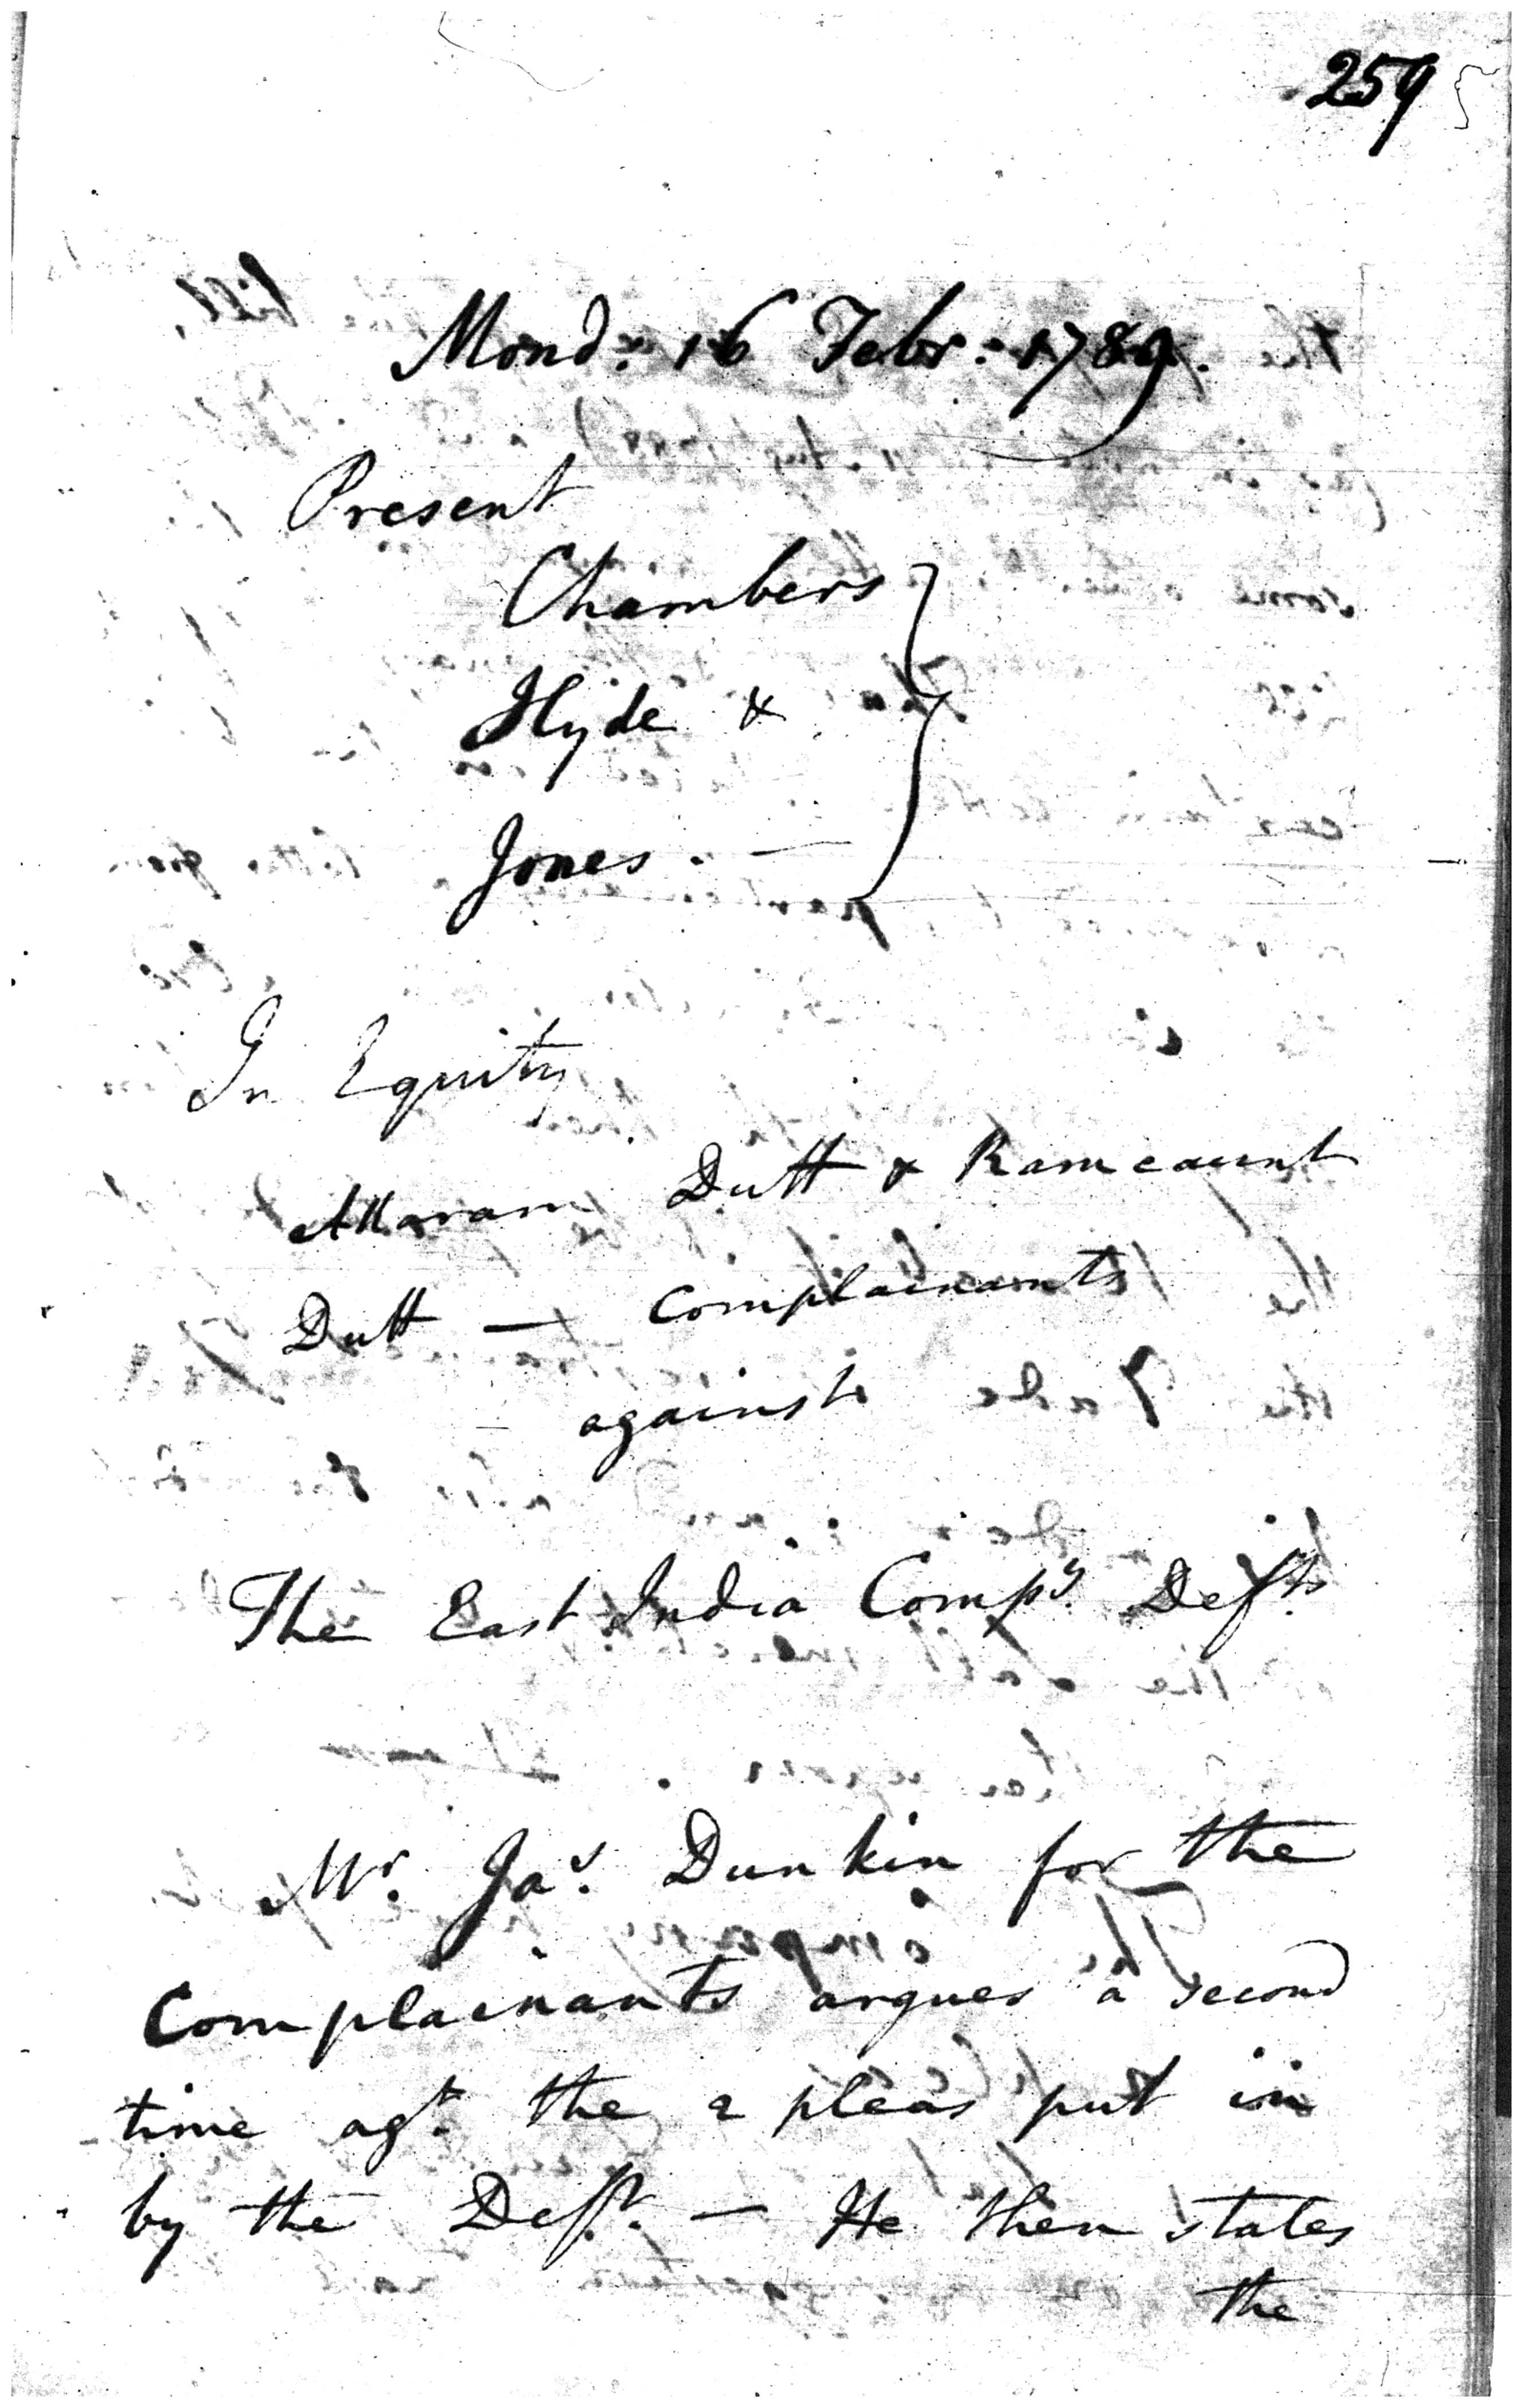 259
Mond. 16 Febr. 1789.
Present
Chambers
Hyde &
Jones. —
In Equity
Attaram Dutt & Ramcaunt
Dutt — Complainants
against
The East India Compy. Defts
Mr. Jas. Dunkin for the
Complainants argues a second
time agt. the 2 pleas put in
by the Deft. — He then states
the